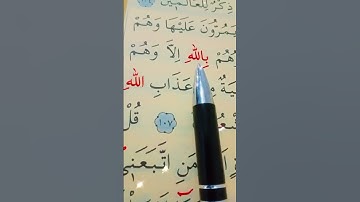 ذِكْرٌ لِلْعَالَمِينَ ١٠٤
يَمُرُّونَ عَلَيْهَا وَهُمْ
هُمْ بِاللّٰهِ اِلَّا وَهُمْ
مِنْ عَذَابِ اللّٰهِ
١٠٧ قُلْ
مَنِ اتَّبَعَنِي